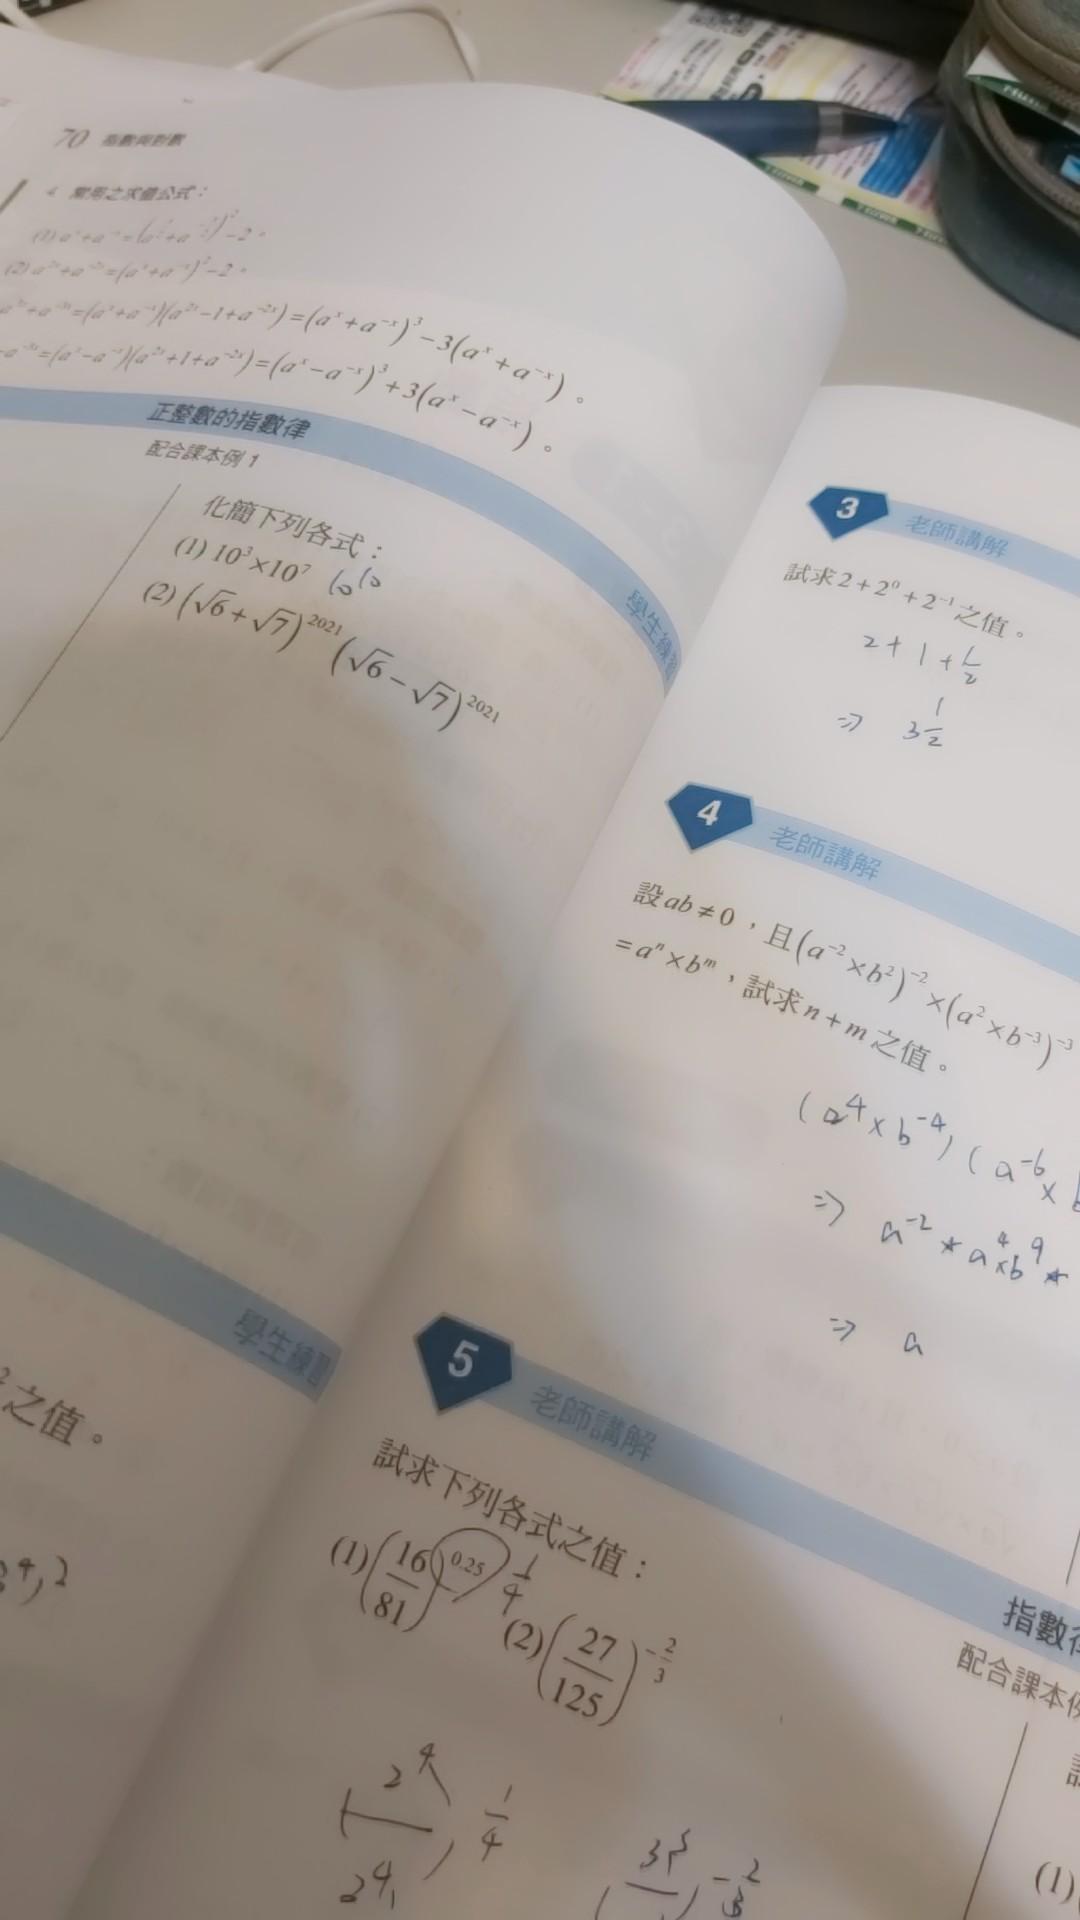 70 指數與對數
4 常用之求值公式:
(2) a²ˣ+a⁻²ˣ=(aˣ+a⁻ˣ)²-2。
a³ˣ+a⁻³ˣ=(aˣ+a⁻ˣ)(a²ˣ-1+a⁻²ˣ)=(aˣ+a⁻ˣ)³-3(aˣ+a⁻ˣ)。
-a⁻³ˣ=(aˣ-a⁻ˣ)(a²ˣ+1+a⁻²ˣ)=(aˣ-a⁻ˣ)³+3(aˣ-a⁻ˣ)。
正整數的指數律
配合課本例1
學生練習
化簡下列各式:
(1) 10³×10⁷ 10¹⁰
(2) (√6+√7)²⁰²¹(√6-√7)²⁰²¹
學生練習
² 之值。
3 老師講解
試求2+2⁰+2⁻¹之值。
2+1+1/2
⇒ 3 1/2
4 老師講解
設ab≠0,且(a⁻²×b²)⁻²×(a²×b⁻³)⁻³
=aⁿ×bᵐ,試求n+m之值。
(a⁴×b⁻⁴)(a⁻⁶×b
⇒ a⁻²*a⁴×b⁹*
⇒ a
5 老師講解
試求下列各式之值:
(1)(16/81)^0.25 1/4
(2)(27/125)^(-2/3)
2⁴ 1/4
2⁴
3³ -2/3
指數律
配合課本例
(1)